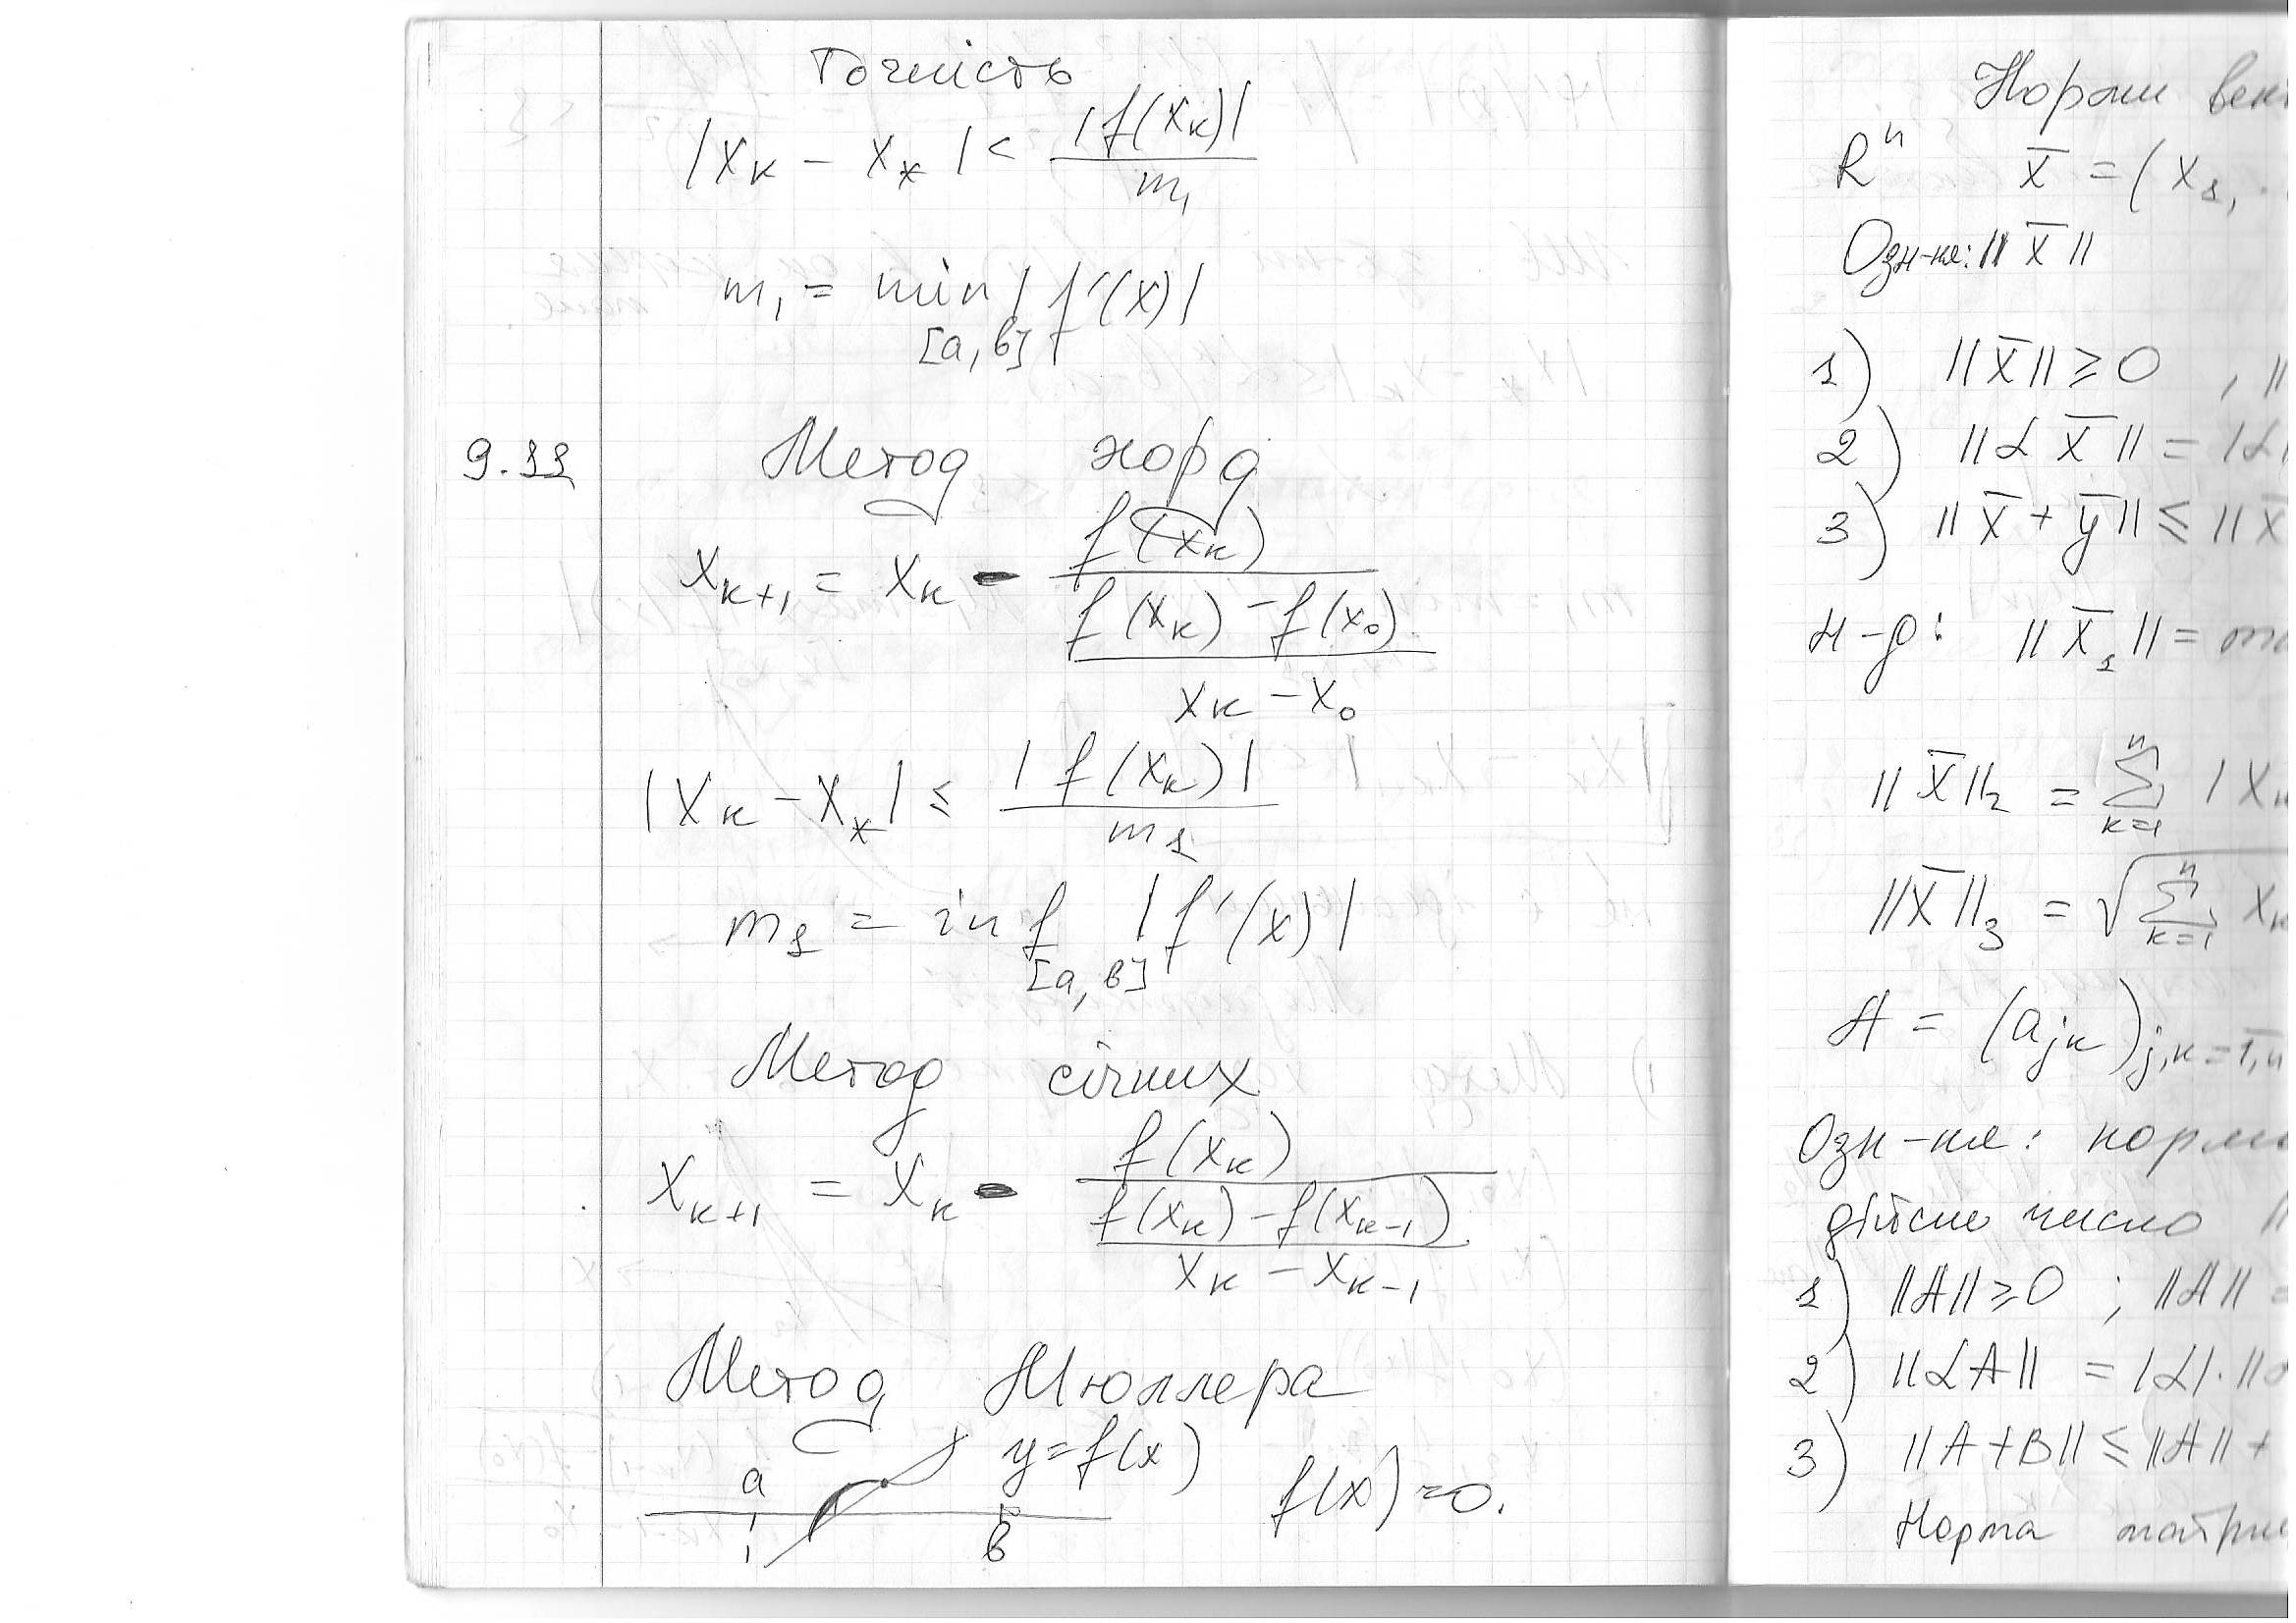 Точність
|x_k - x_*| < |f(x_k)| / m_1
m_1 = min |f'(x)|
[a, b]
9.11 Метод хорд
x_{k+1} = x_k - f(x_k) / ((f(x_k) - f(x_0)) / (x_k - x_0))
|x_k - x_*| ≤ |f(x_k)| / m_1
m_1 = inf |f'(x)|
[a, b]
Метод січних
x_{k+1} = x_k - f(x_k) / ((f(x_k) - f(x_{k-1})) / (x_k - x_{k-1}))
Метод Мюллера
a b y = f(x) f(x) = 0.
Норми век
R^n x̄ = (x_1, .
Озн-ня: ||x̄||
1) ||x̄|| ≥ 0 , ||
2) ||α x̄|| = |α|
3) ||x̄ + ȳ|| ≤ ||x̄
Н-д: ||x̄_1|| = m
||x̄||_2 = ∑_{k=1}^n |x_k
||x̄||_3 = √∑_{k=1}^n x_k
A = (a_{jk})_{j,k=1,n}
Озн-ня: норм
дійсне число ||
1) ||A|| ≥ 0 ; ||A|| =
2) ||αA|| = |α| · ||
3) ||A + B|| ≤ ||A|| +
Норма матри